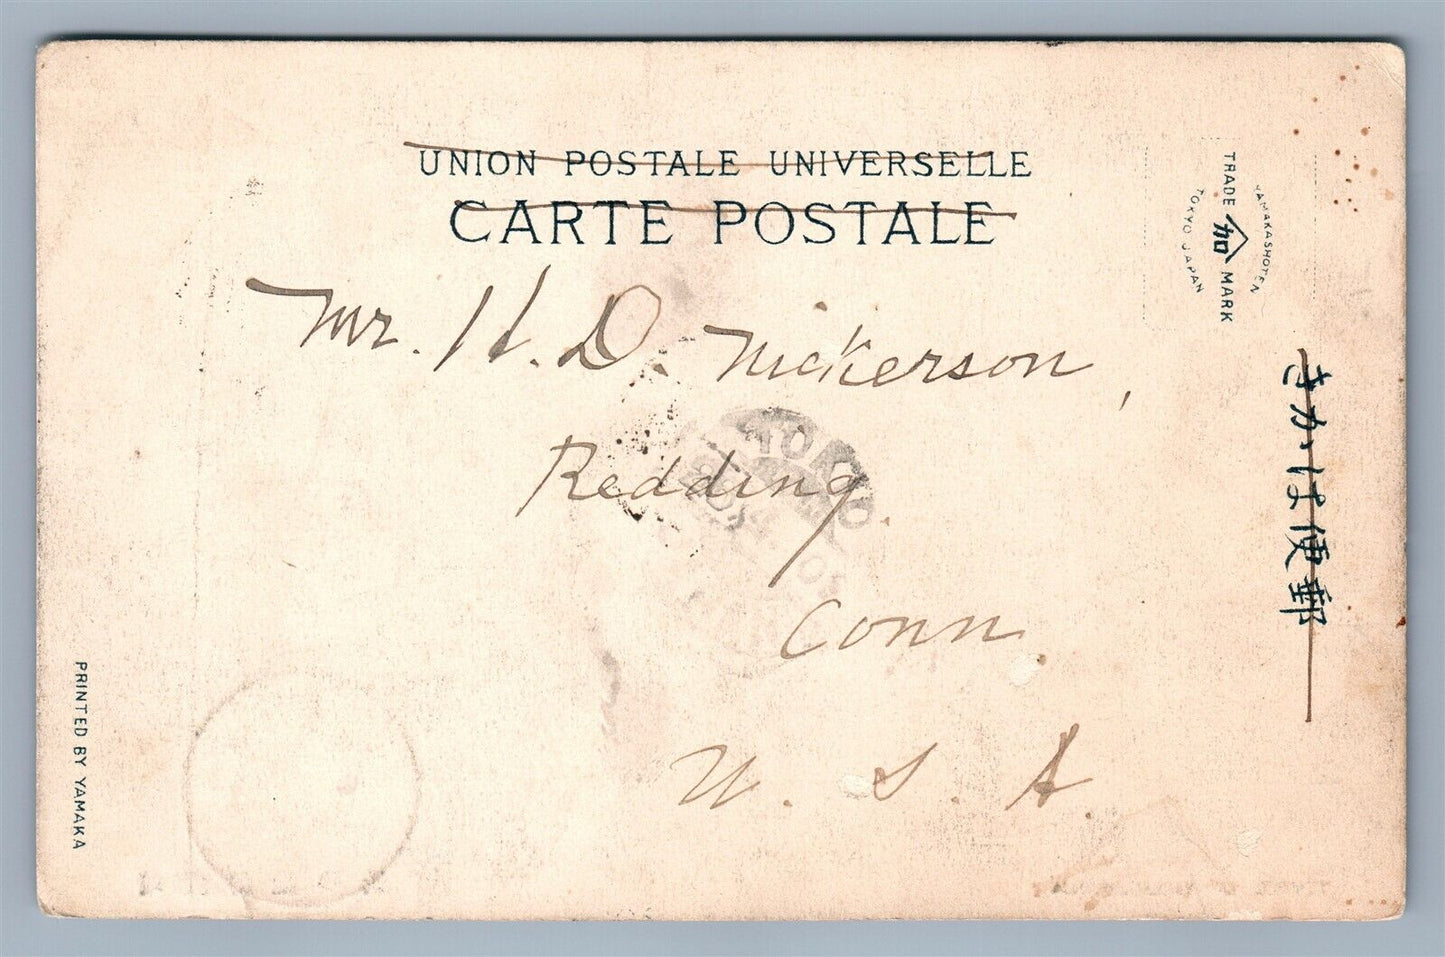 UNION POSTALE UNIVERSELLE
CARTE POSTALE
TRADE 加 MARK
YAMAKASHOTEN
TOKYO JAPAN
Mr. H. D. Nickerson,
Redding
Conn
U. S. A
TOKYO
きかは便郵
PRINTED BY YAMAKA